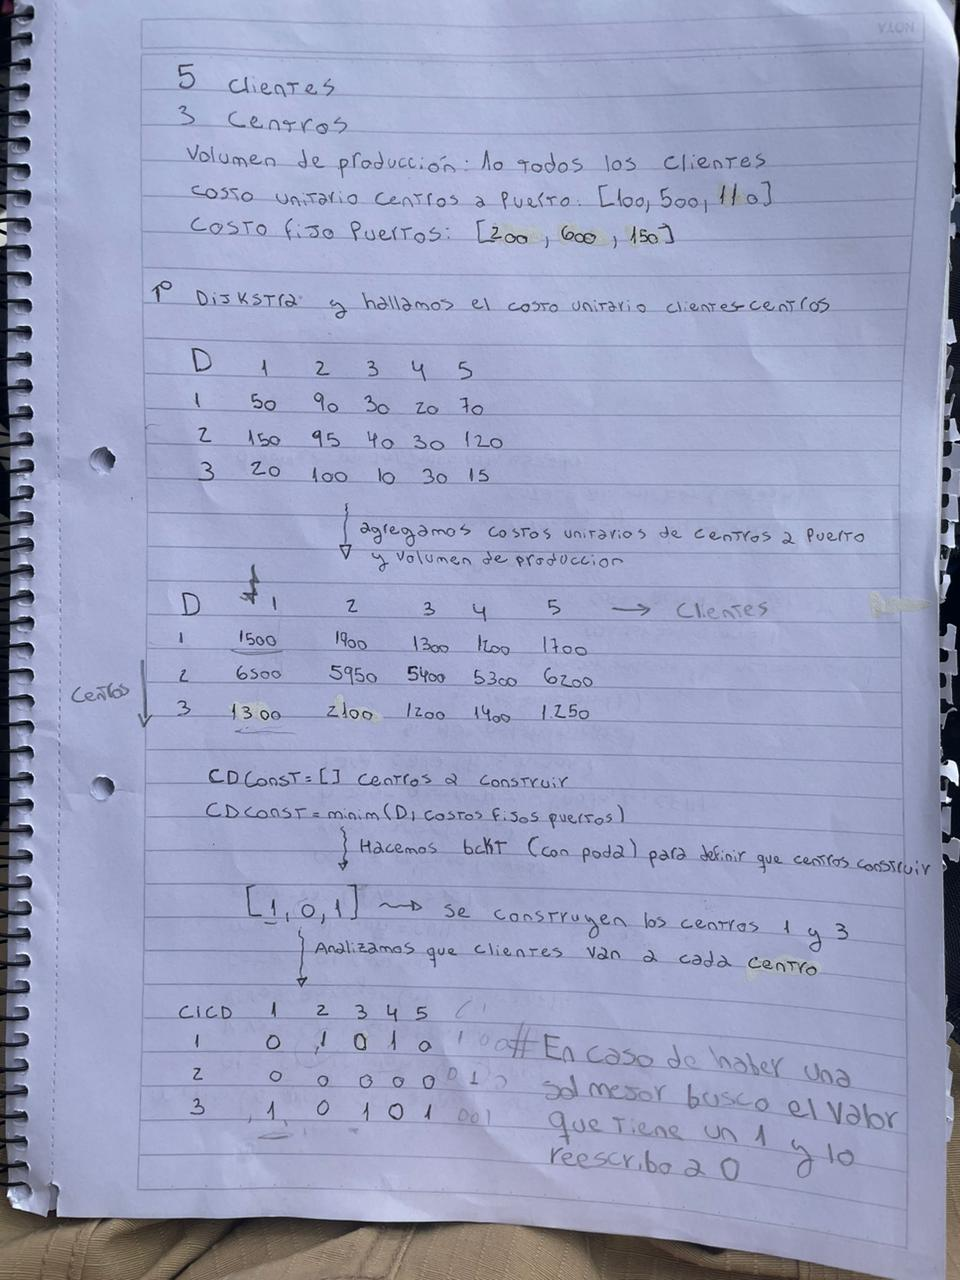 NOTA
5 Clientes
3 Centros
Volumen de producción: 10 todos los clientes
costo unitario centros a puerto: [100, 500, 110]
Costo fijo Puertos: [200, 600, 150]
1º Dijkstra y hallamos el costo unitario clientes-centros
D 1 2 3 4 5
1 50 90 30 20 70
2 150 95 40 30 120
3 20 100 10 30 15
agregamos costos unitarios de centros a puerto
y volumen de produccion
D 1 2 3 4 5 → Clientes
1 1500 1900 1300 1200 1700
2 6500 5950 5400 5300 6200
Centros
3 1300 2100 1200 1400 1.250
CDConst = [] centros a construir
CDConst = minim(D, costos fijos puertos)
Hacemos bckt (con poda) para definir que centros construir
[1, 0, 1] → se construyen los centros 1 y 3
Analizamos que clientes van a cada centro
CICD 1 2 3 4 5
1 0 1 0 1 0 1 0 0 # En caso de haber una
2 0 0 0 0 0 0 1 0 sol mejor busco el valor
3 1 0 1 0 1 0 0 1 que tiene un 1 y lo
reescribo a 0